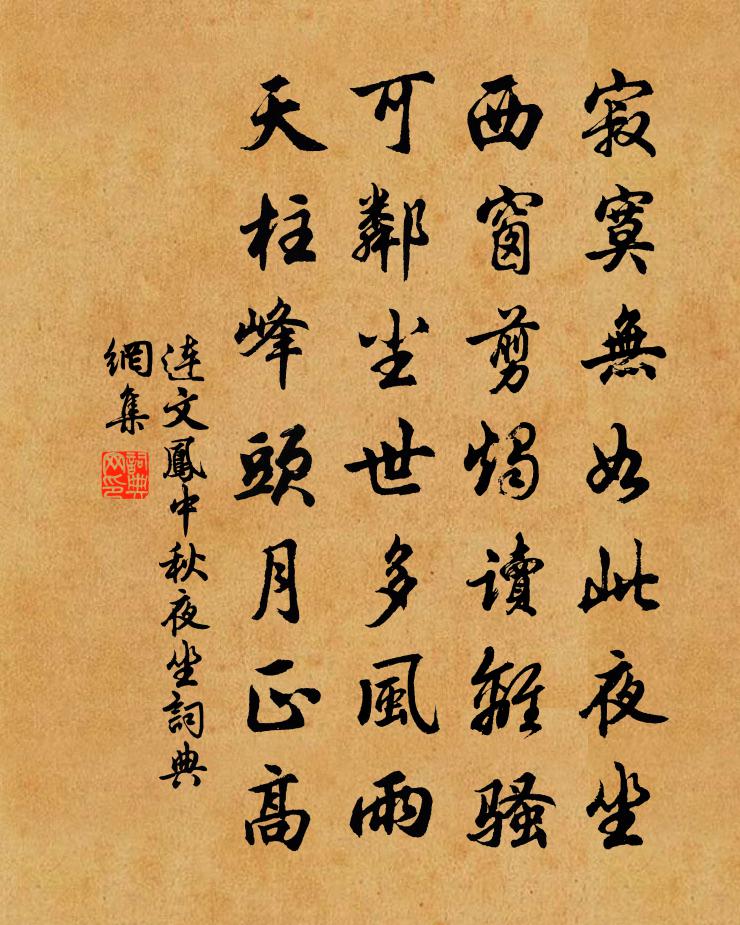 寂寞無如此夜坐
西窗剪燭讀離騷
可鄰尘世多風雨
天柱峰頭月正高
連文鳳中秋夜坐詞典
網集
詞典
网印